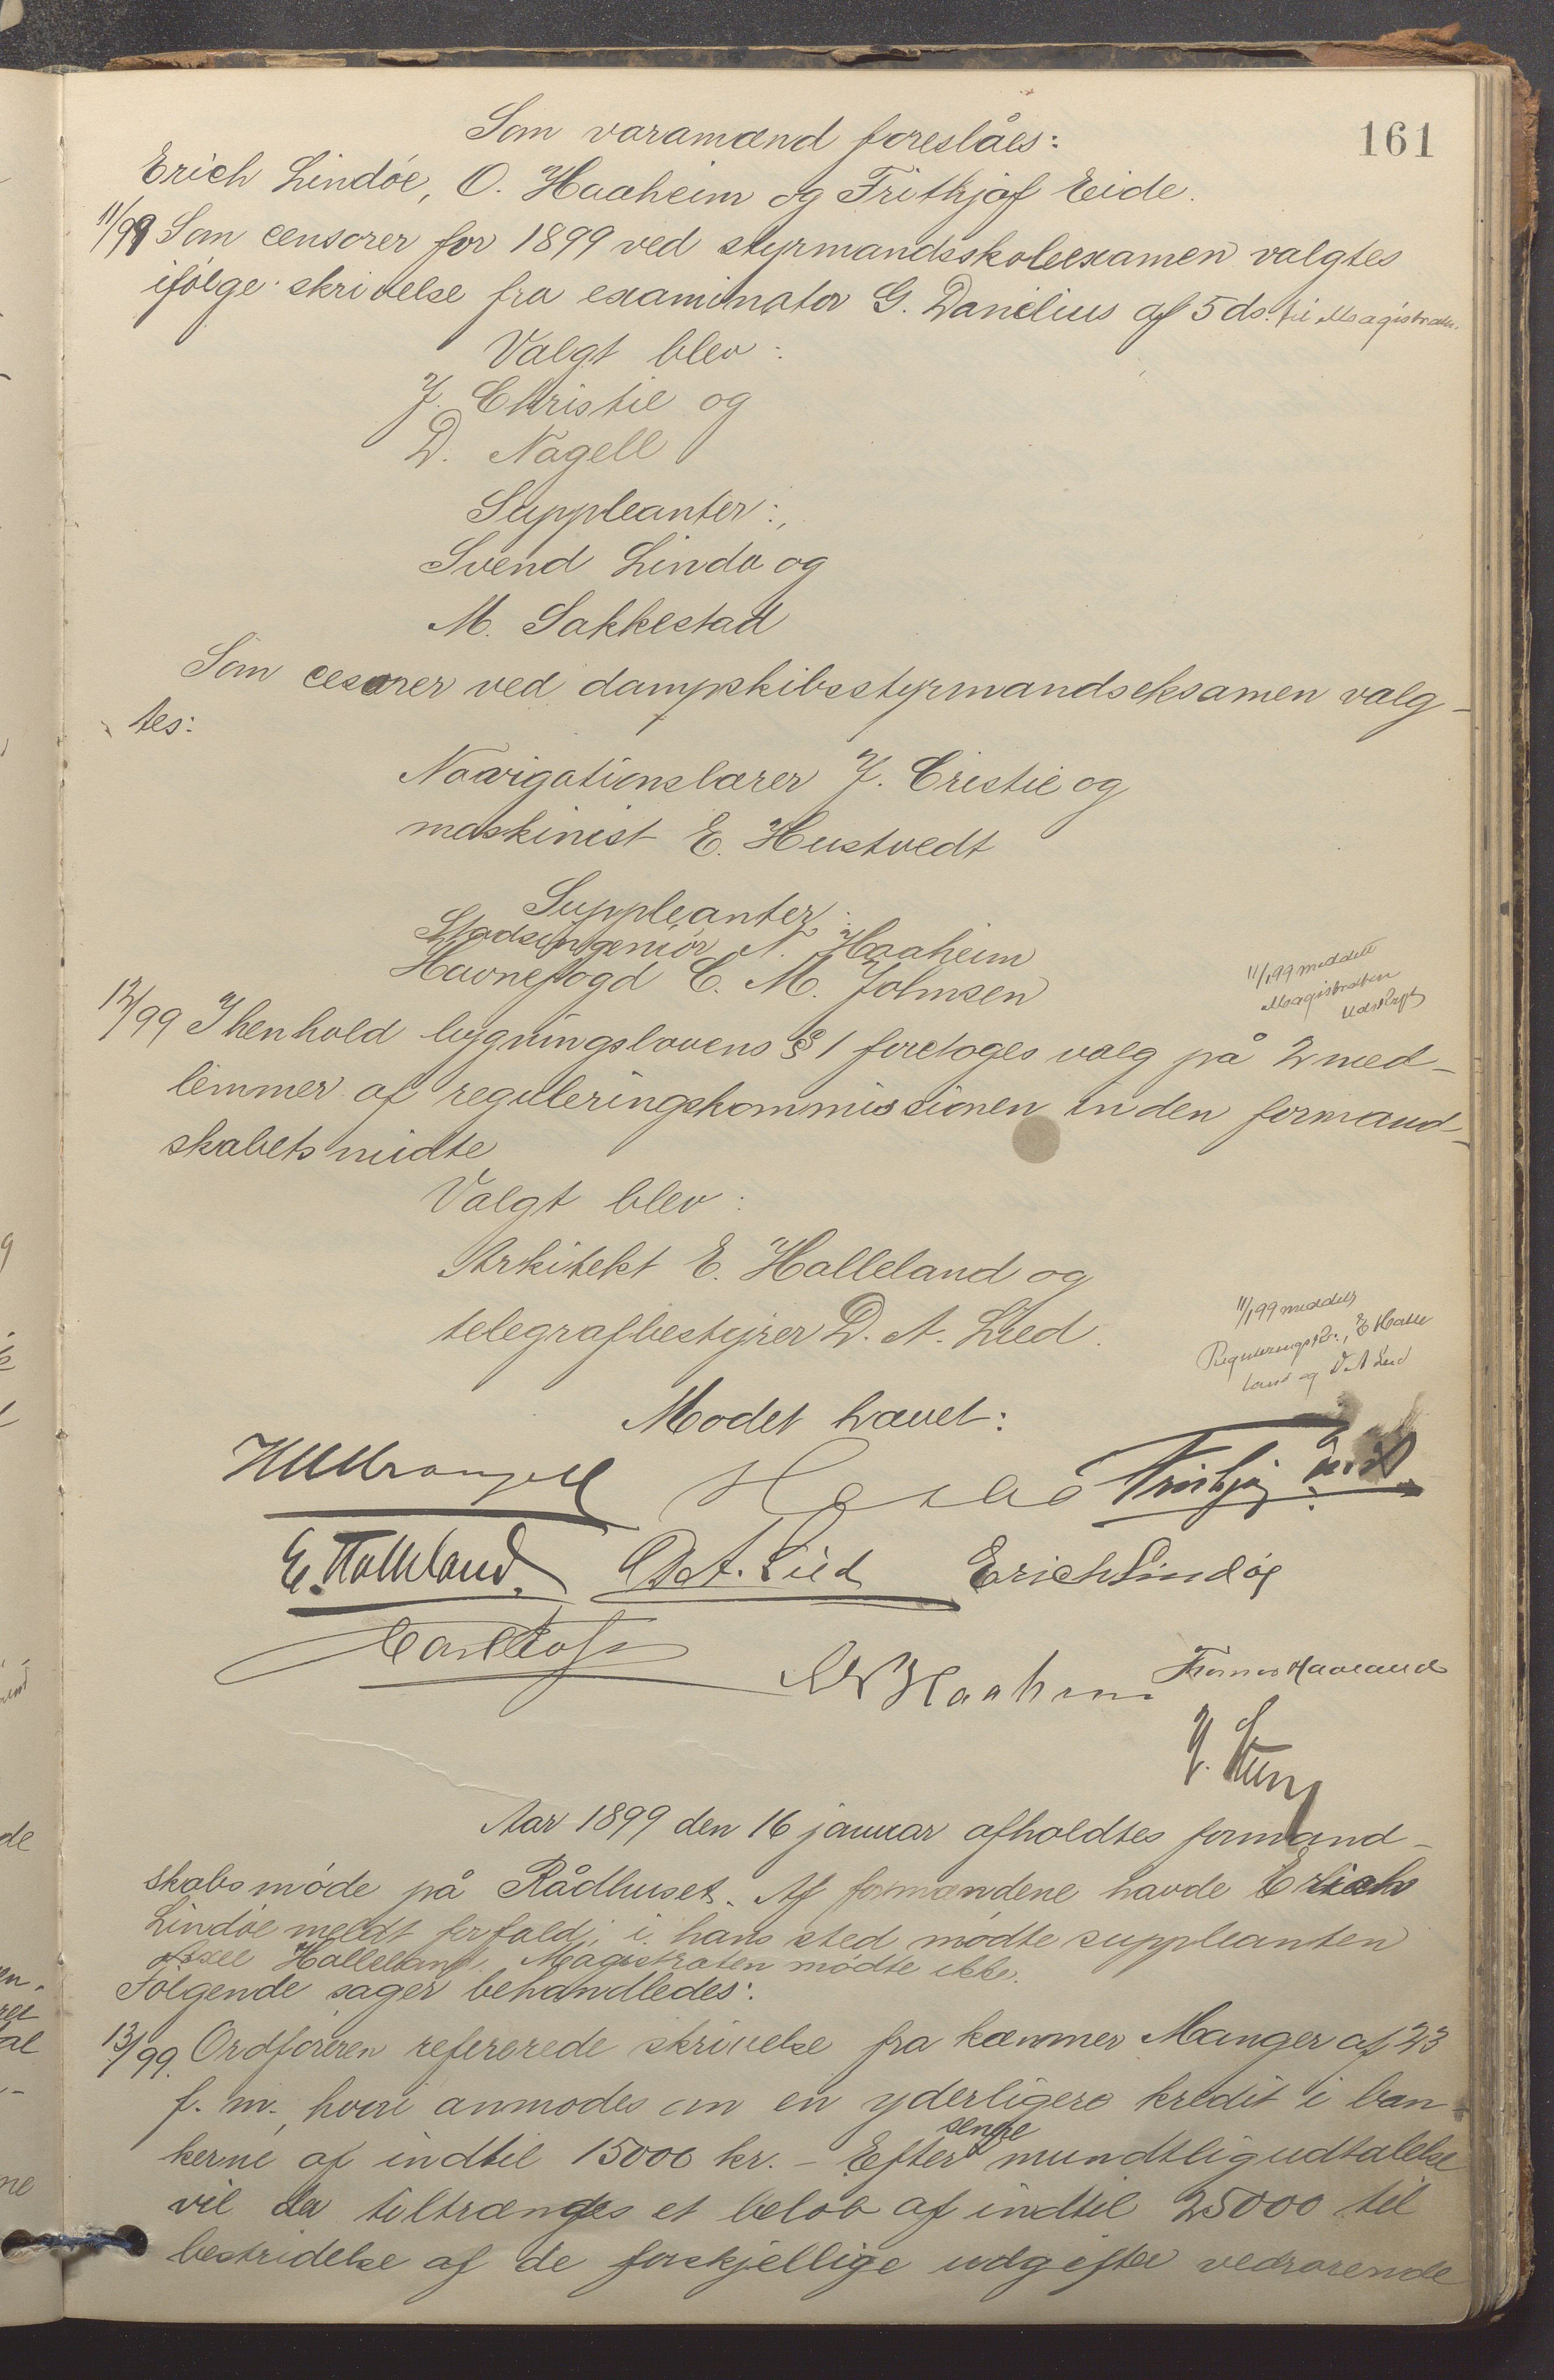 161
Som varamænd foreslåes:
Erich Lindøe, O. Haaheim og Frithjof Eide.
11/99 Som censorer for 1899 ved styrmandsskoleexamen valgtes
ifølge skrivelse fra examinator G. Danielius af 5 ds. til Magistraten.
Valgt blev:
J. Christie og
D. Nagell
Suppleanter:
Svend Lindø og
M. Sakkestad
Som cesorer ved dampskibsstyrmandseksamen valg-
tes:
Navigationslærer J. Cristie og
maskinist E. Hustvedt
Suppleanter:
Stadsingeniør N. Haaheim
Havnefogd C. M. Johnsen
11/1 99 meddelt
Magistraten
Udskrift
12/99 I henhold bygningslovens § 1 foretoges valg på 2 med-
lemmer af reguleringskommissionen inden formand-
skabets midte
Valgt blev:
Arkitekt E. Halleland og
telegrafbestyrer D. A. Lied.
11/1 99 meddelt
Reguleringsk., E Halle
land og D A Lied
Mødet hævet:
E. Halleland. D. A. Lied Erich Lindøe
Aar 1899 den 16 januar afholdtes formand-
skabsmøde på Rådhuset. Af formændene havde Erich
Lindøe meldt forfald; i hans sted mødte suppleanten
Axel Halleland. Magistraten mødte ikke.
Følgende sager behandledes:
13/99. Ordføreren refererede skrivelse fra kæmner Manger af 23
f. m. hvori anmodes om en yderligere kredit i ban-
kerne af indtil 15000 kr. - Efter senere mundtlig udtalelse
vil der tiltrænges et beløb af indtil 25000 til
bestridelse af de forskjellige udgifter vedrørende